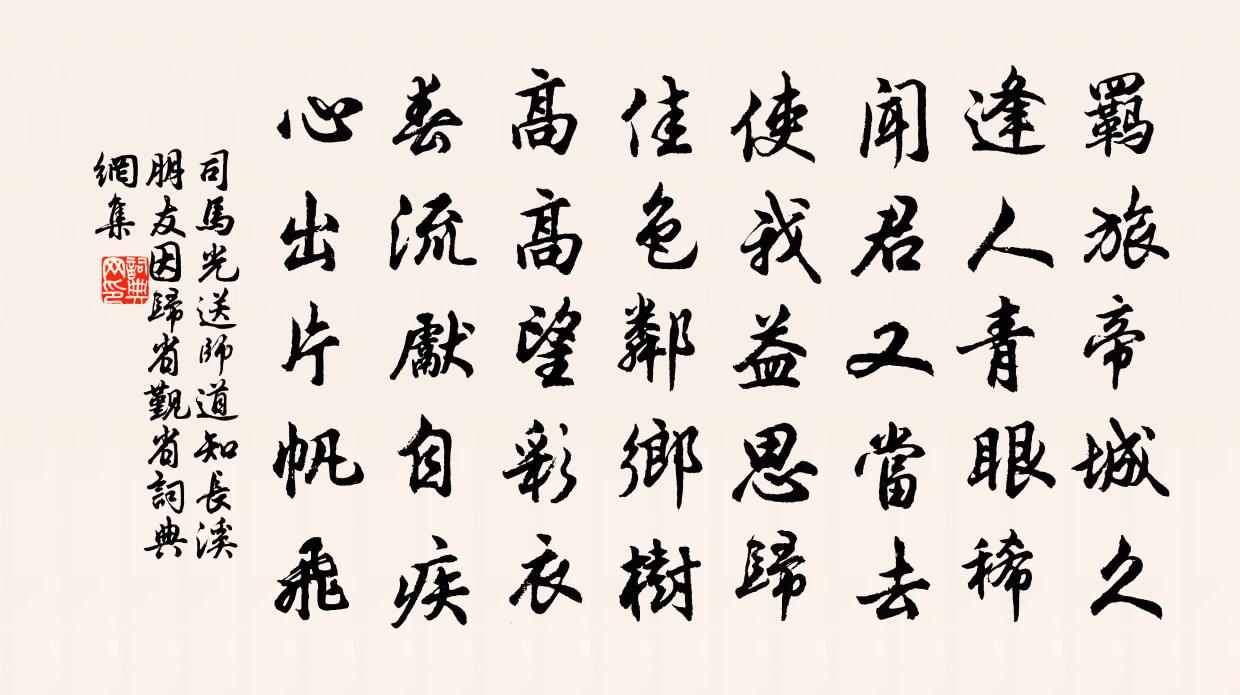 羈旅帝城久
逢人青眼稀
聞君又當去
使我益思歸
佳色鄰鄉樹
高高望彩衣
春流獻自疾
心出片帆飛
司馬光送師道知長溪
朋友因歸省覲省詞典
網集
詞典
网印